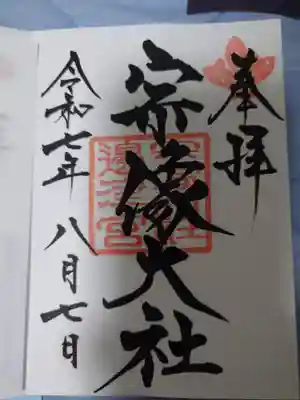 奉拝
宗像大社
令和七年 八月七日